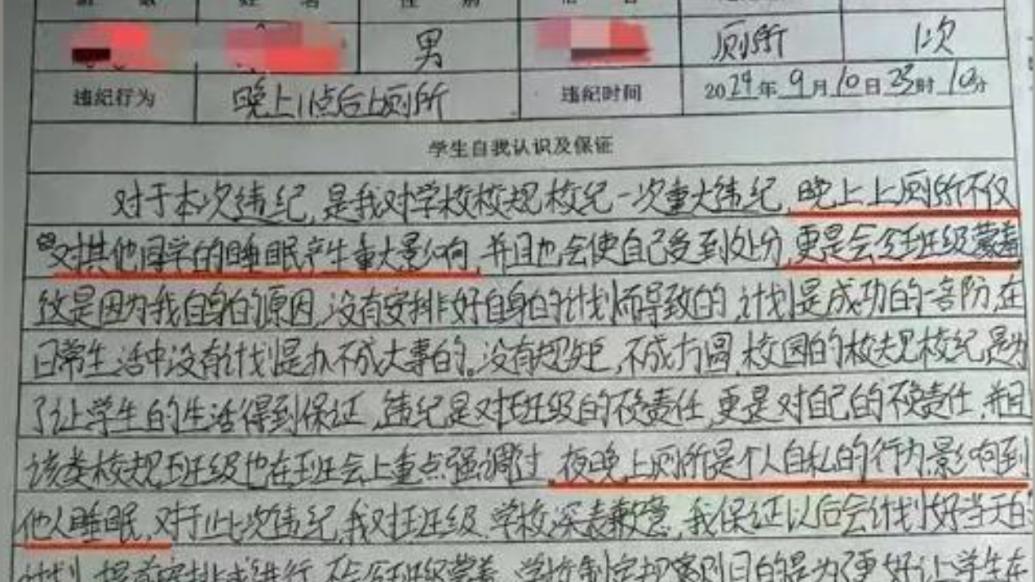 男 厕所 1次
违纪行为 晚上11点后上厕所 违纪时间 2024年9月10日23时10分
学生自我认识及保证
对于本次违纪,是我对学校校规校纪一次重大违纪,晚上上厕所不仅
对其他同学的睡眠产生重大影响,并且也会使自己受到处分,更是会令班级蒙羞
这是因为我自身的原因,没有安排好自身的计划而导致的,计划是成功的一部份,在
日常生活中没有计划是办不成大事的。没有规矩,不成方圆,校园的校规校纪是为
了让学生的生活得到保证,违纪是对班级的不负责任,更是对自己的不负责任,并且
该类校规班级也在班会上重点强调过,夜晚上厕所是个人自私的行为,影响到
他人睡眠,对于此次违纪,我对班级、学校深表歉意,我保证以后会计划好当天的